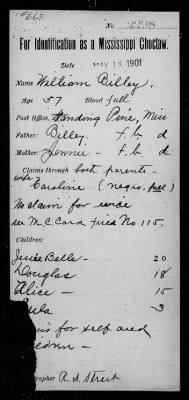 #663.
No. 2238
For Identification as a Mississippi Choctaw.
Date MAY 18 1901
Name William Billey.
Age 57 Blood full
Post Office, Standing Pine, Miss
Father: Billey. f. b d
Mother: Jennie - f. b d
Claims through both parents -
wife
Caroline (negro, full)
No claim for wife
see M.C. Card filed No 115.
Children:
Belle - 20
Douglas 18
Alice - 15
Eula 3
is for self and
children -
grapher R. S. Streit